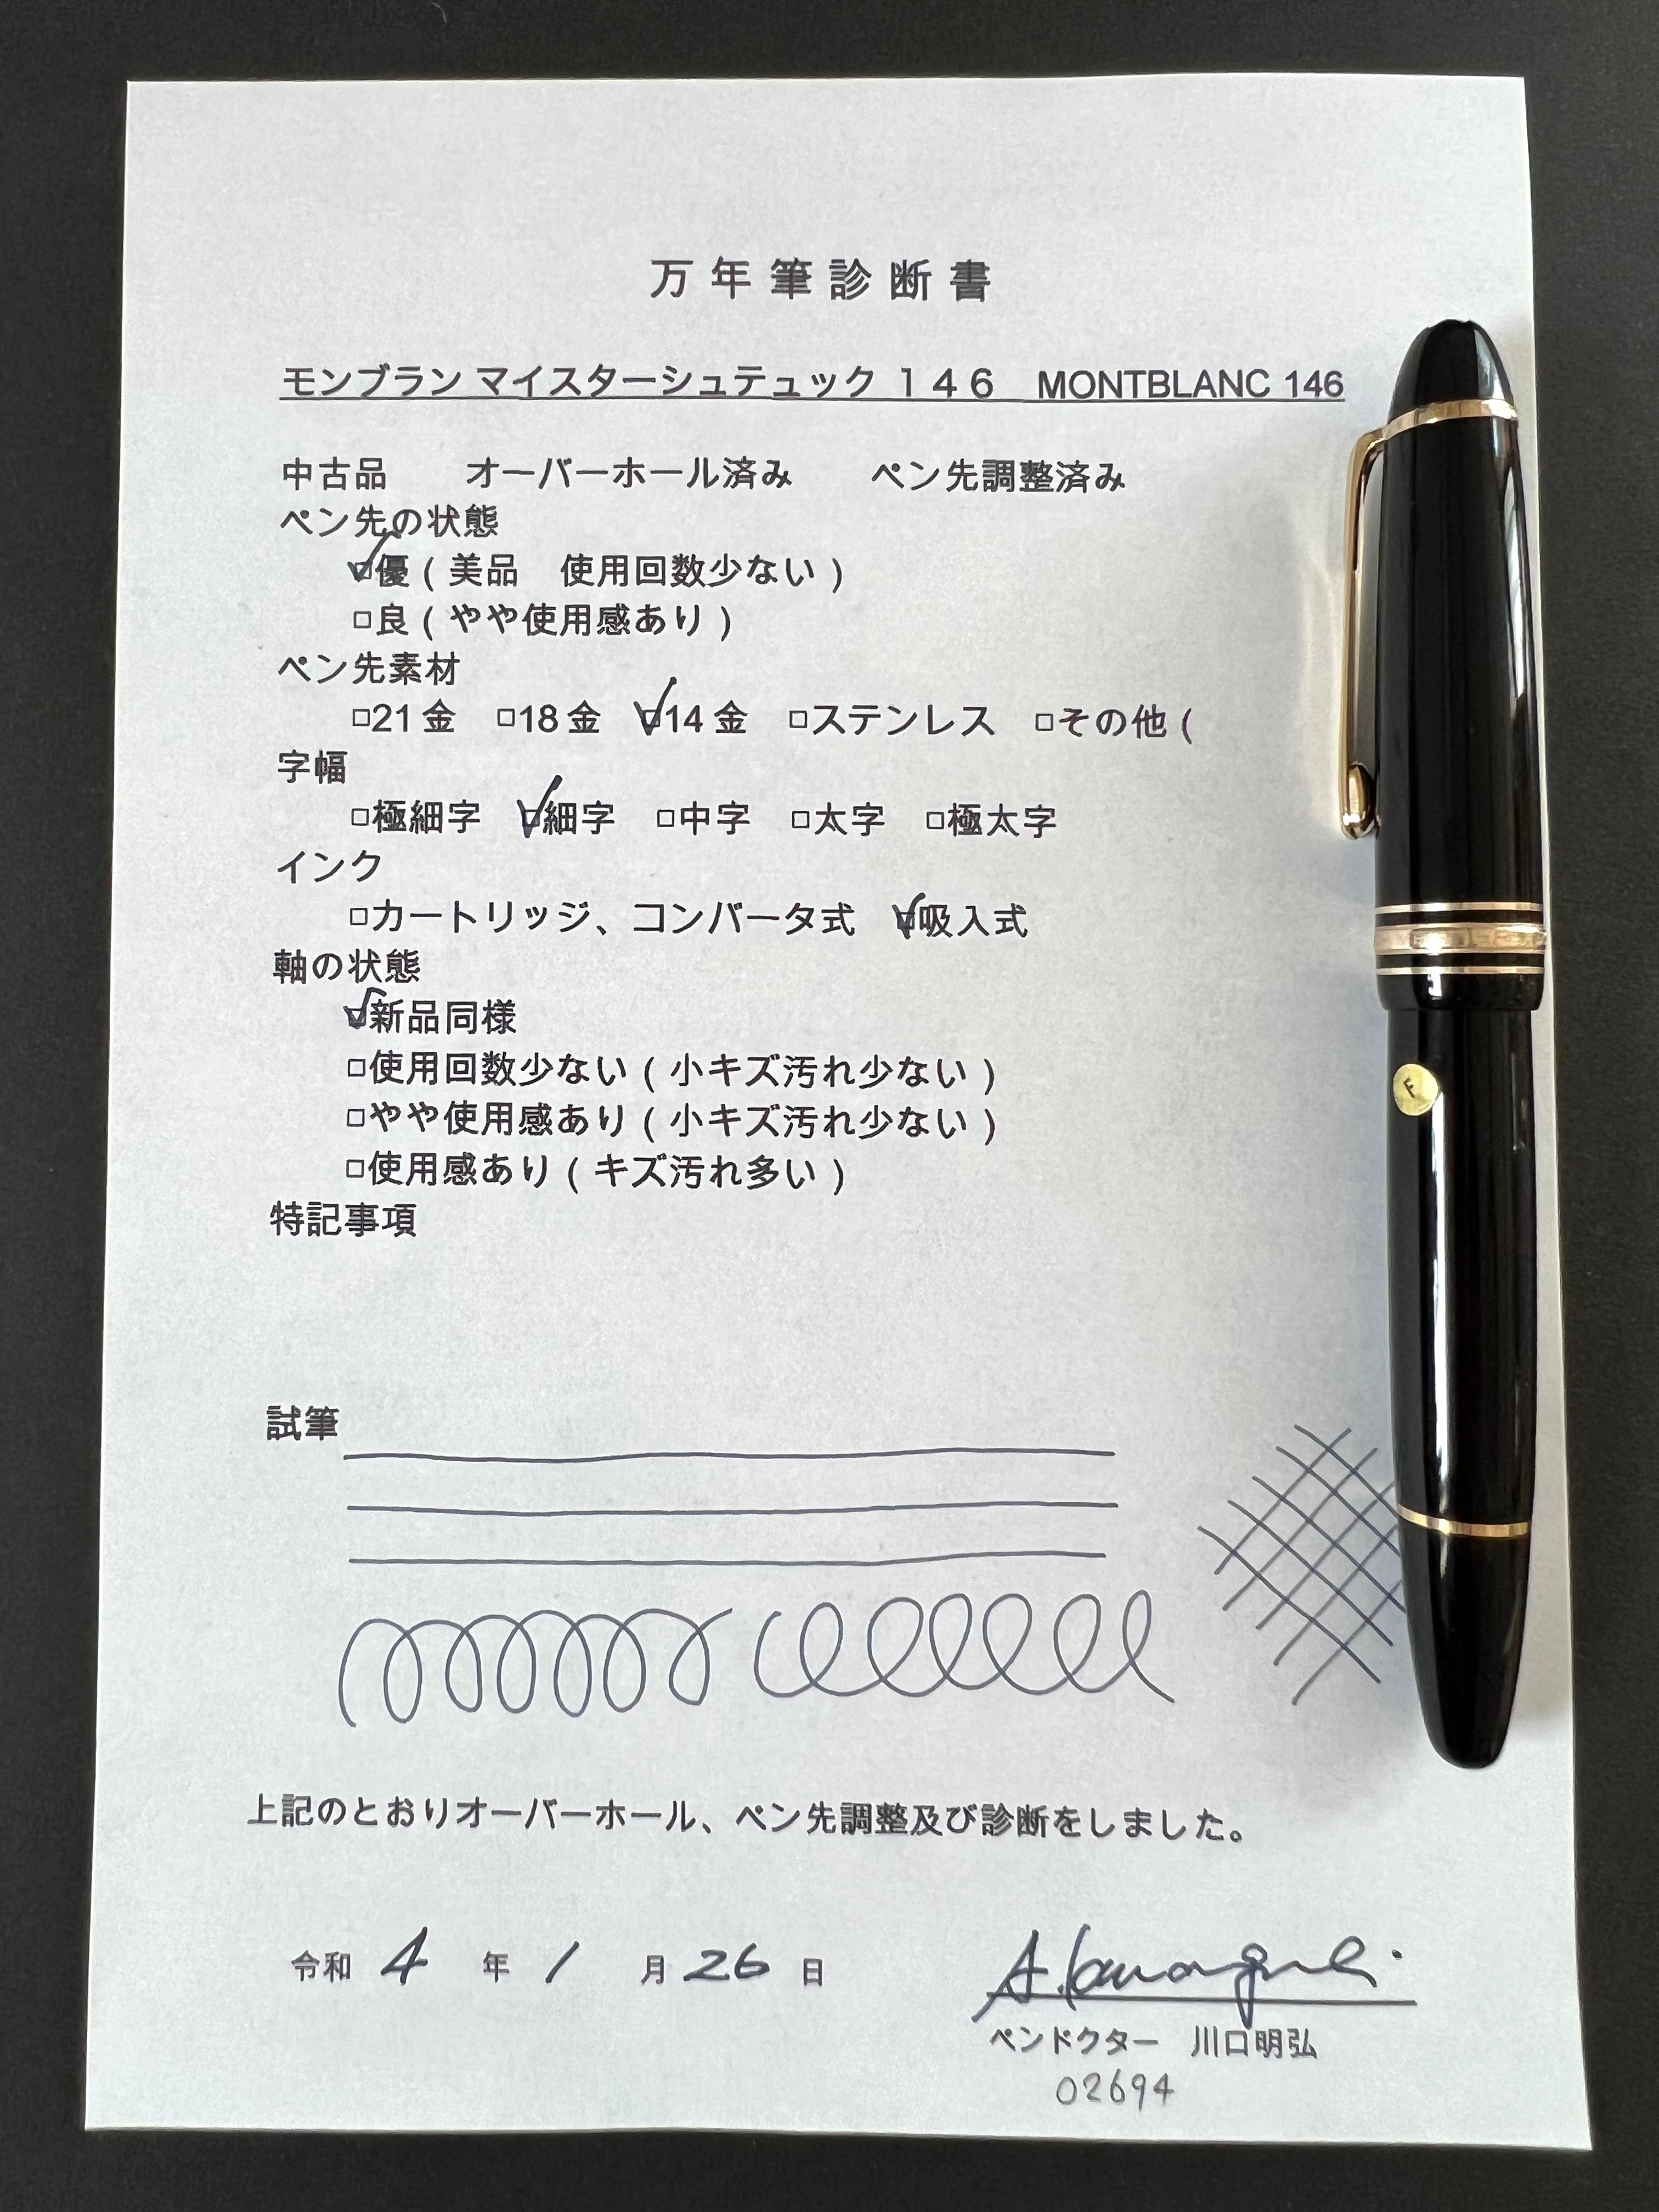 万年筆診断書
モンブラン マイスターシュテュック １４６　MONTBLANC 146
中古品　　オーバーホール済み　　ペン先調整済み
ペン先の状態
☑優（美品　使用回数少ない）
□良（やや使用感あり）
ペン先素材
□21金　□18金　☑14金　□ステンレス　□その他（
字幅
□極細字　☑細字　□中字　□太字　□極太字
インク
□カートリッジ、コンバータ式　☑吸入式
軸の状態
☑新品同様
□使用回数少ない（小キズ汚れ少ない）
□やや使用感あり（小キズ汚れ少ない）
□使用感あり（キズ汚れ多い）
特記事項
試筆
上記のとおりオーバーホール、ペン先調整及び診断をしました。
令和 4 年 1 月 26 日
A. Kawaguchi
ペンドクター　川口明弘
02694
F